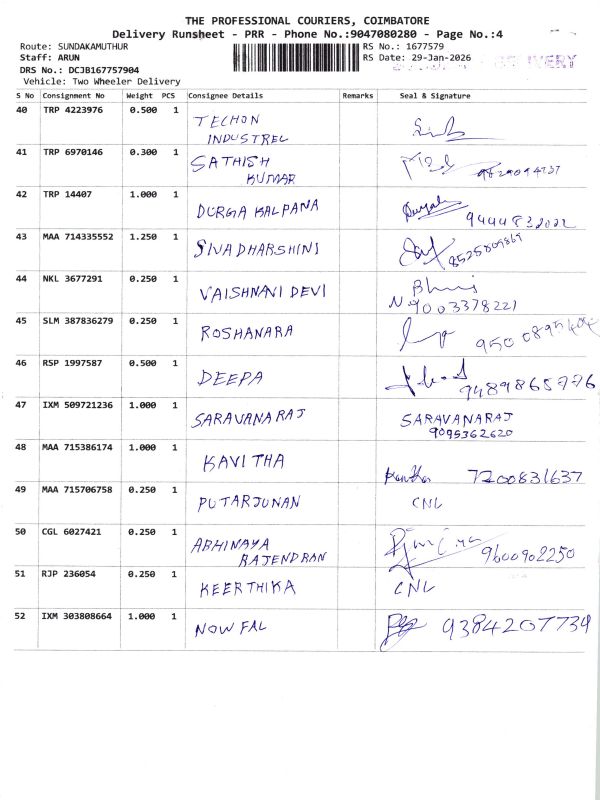 THE PROFESSIONAL COURIERS, COIMBATORE
Delivery Runsheet - PRR - Phone No.:9047080280 - Page No.:4
Route: SUNDAKAMUTHUR RS No.: 1677579
Staff: ARUN RS Date: 29-Jan-2026
DRS No.: DCJB167757904
Vehicle: Two Wheeler Delivery
S No Consignment No Weight PCS Consignee Details Remarks Seal & Signature
40 TRP 4223976 0.500 1 TECHON
INDUSTREL
41 TRP 6970146 0.300 1 SATHISH
KUMAR
42 TRP 14407 1.000 1 DURGA KALPANA
43 MAA 714335552 1.250 1 SIVADHARSHINI 8525809869
44 NKL 3677291 0.250 1 VAISHNAVI DEVI
9003378221
45 SLM 387836279 0.250 1 ROSHANARA
46 RSP 1997587 0.500 1 DEEPA 9489865776
47 IXM 509721236 1.000 1 SARAVANARAJ SARAVANARAJ
9095362620
48 MAA 715386174 1.000 1 KAVITHA 7200831637
49 MAA 715706758 0.250 1 PUTARJUNAN CNL
50 CGL 6027421 0.250 1 ABHINAYA
RAJENDRAN 9600902250
51 RJP 236054 0.250 1 KEERTHIKA CNL
52 IXM 303808664 1.000 1 NOWFAL 9384207734